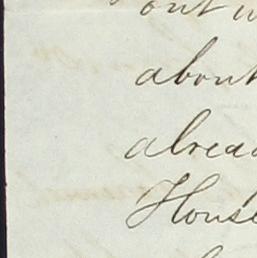 out w
about
alread
House